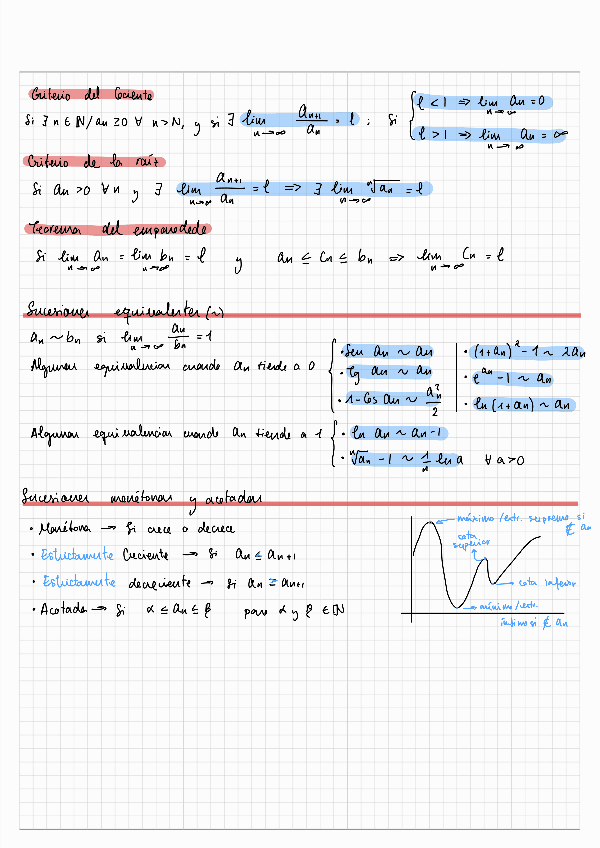 Criterio del Cociente
Si ∃ n ∈ ℕ / an ≥ 0 ∀ n > N, y si ∃ lim n→∞ an+1/an = l ; Si { l < 1 ⇒ lim n→∞ an = 0
l > 1 ⇒ lim n→∞ an = ∞
Criterio de la raíz
Si an > 0 ∀ n y ∃ lim n→∞ an+1/an = l ⇒ ∃ lim n→∞ ⁿ√an = l
Teorema del emparedado
Si lim n→∞ an = lim n→∞ bn = l y an ≤ cn ≤ bn ⇒ lim n→∞ cn = l
Sucesiones equivalentes (~)
an ~ bn si lim n→∞ an/bn = 1
Algunas equivalencias cuando an tiende a 0
· Sen an ~ an
· Tg an ~ an
· 1 - Cos an ~ an²/2
· (1+an)² - 1 ~ 2an
· e^an - 1 ~ an
· ln (1+an) ~ an
Algunas equivalencias cuando an tiende a 1
· ln an ~ an - 1
· ⁿ√an - 1 ~ 1/n ln a ∀ a > 0
Sucesiones monótonas y acotadas
· Monótona → Si crece o decrece
· Estrictamente Creciente → Si an ≤ an+1
· Estrictamente decreciente → Si an ≥ an+1
· Acotada → Si α ≤ an ≤ β para α y β ∈ ℕ
máximo/extr. supremo si ∉ an
cota superior
cota inferior
mínimo/extr.
ínfimo si ∉ an